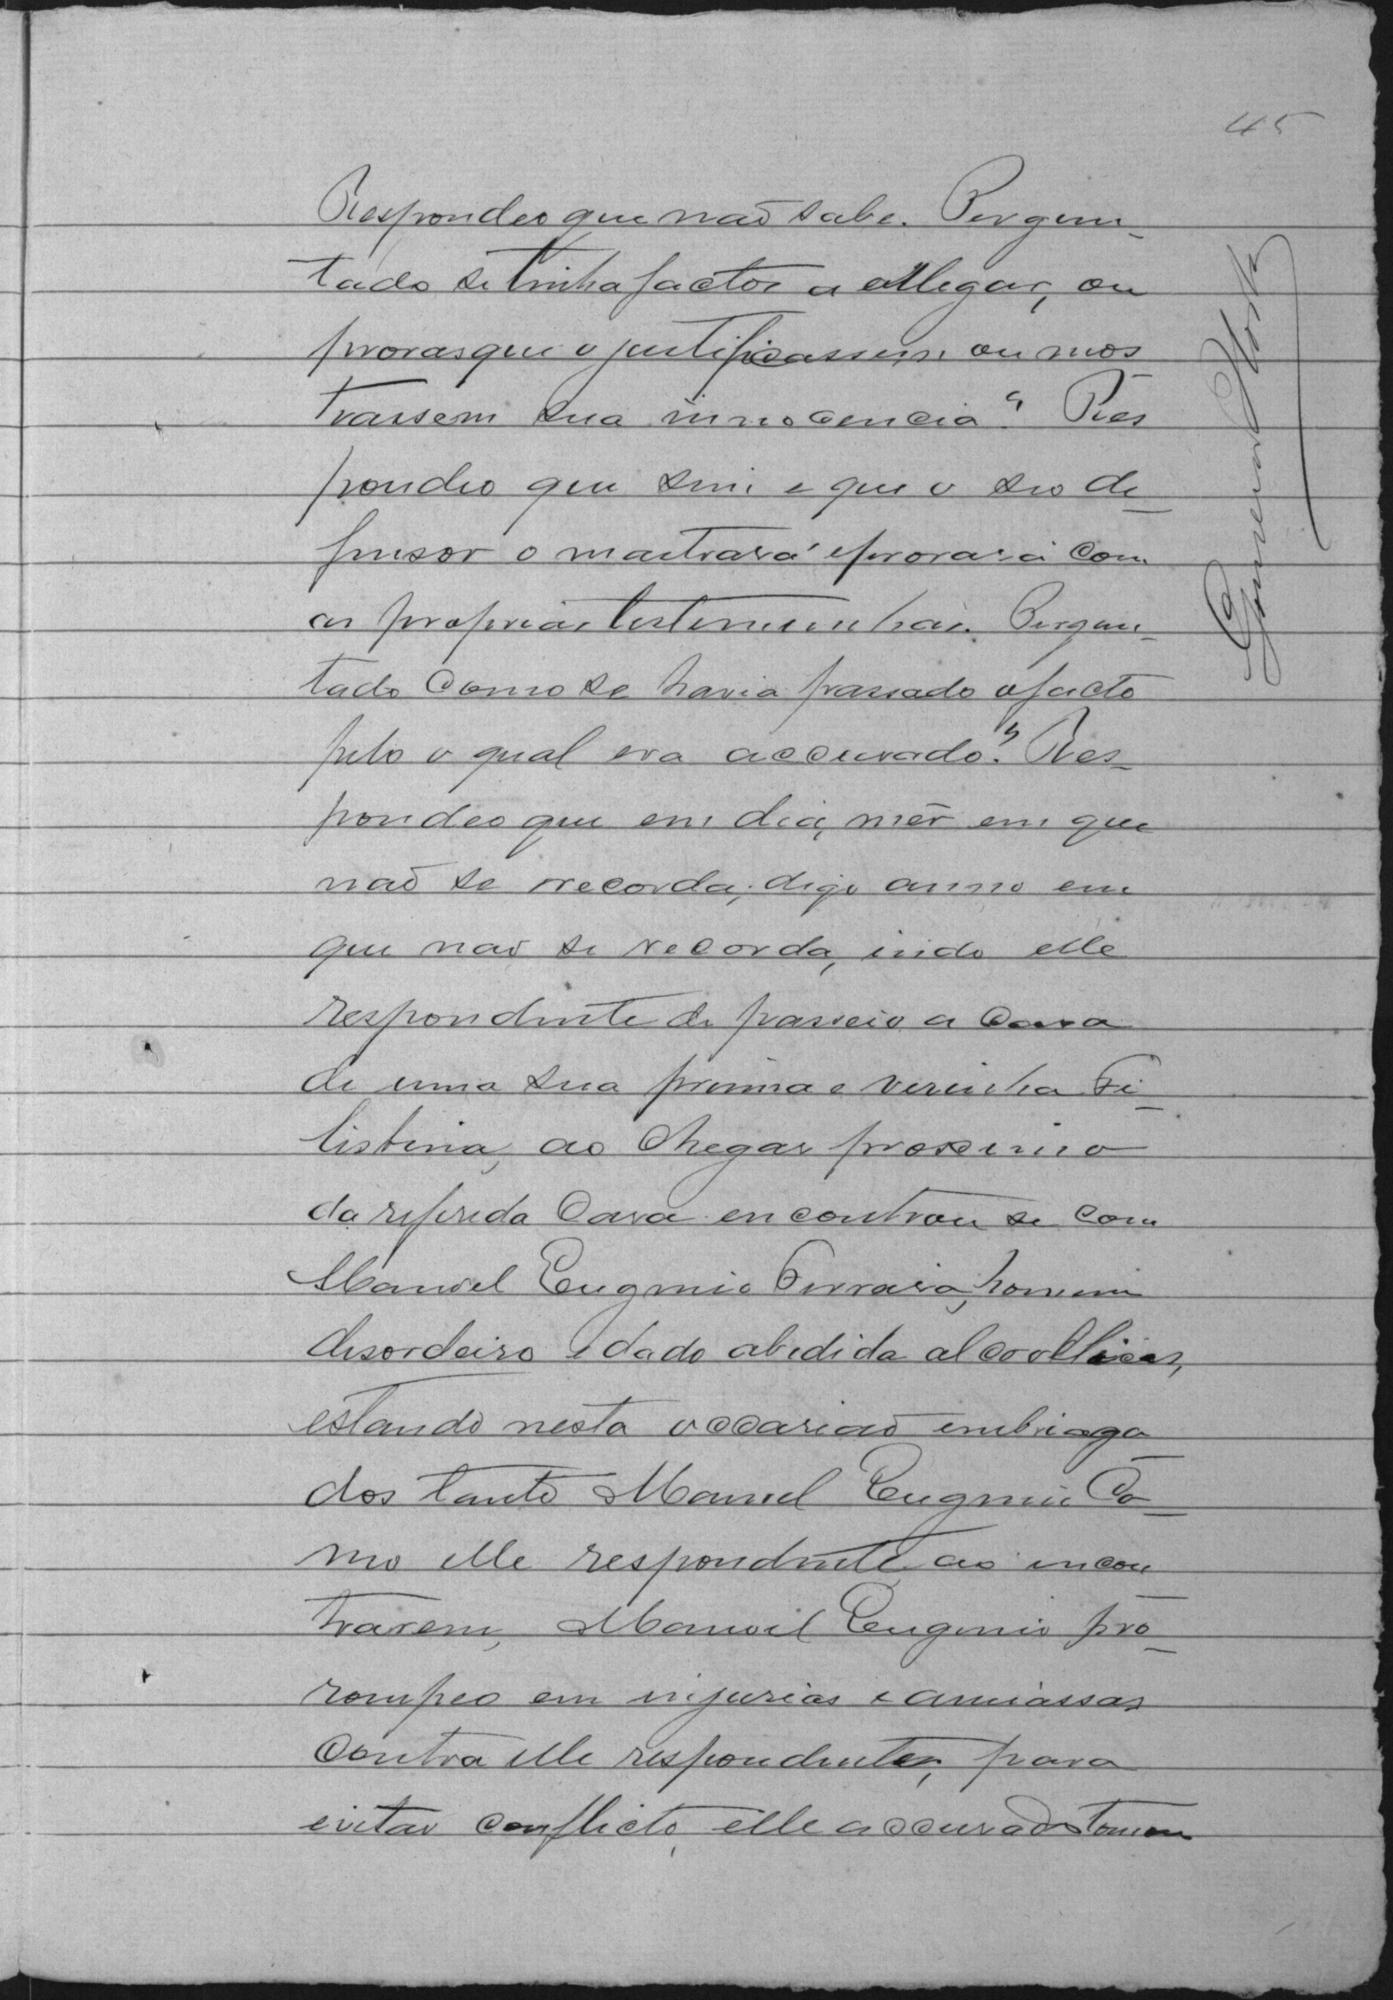 45
Respondeo que naõ sabe. Pergun-
tado se tinha factos a allegar, ou
provas que o justificassem ou mos
trassem sua innocencia? Res
pondeo que sim e que o seo de-
fensor o mostrará e provará com
as proprias testemunhas. Pergun-
tado como se havia passado o facto
pelo o qual era accusado? Res-
pondeo que em dia, mêz em que
naõ se recorda, digo anno em
que naõ se recorda, indo elle
respondente de passeio a casa
de uma sua prima e visinha Fi-
listina, ao chegar proximo
da referida casa encontrou se com
Manoel Eugenio Ferreira, homem
desordeiro e dado a bedida alcoollicas,
estando nesta occasiaõ embriaga
dos tanto Manoel Eugenio Co-
mo elle respondente, ao encon
trarem, Manoel Eugenio pro-
rompeo em injurias e ameassas
contra elle respondente, para
evitar conflicto, elle accusado tomou